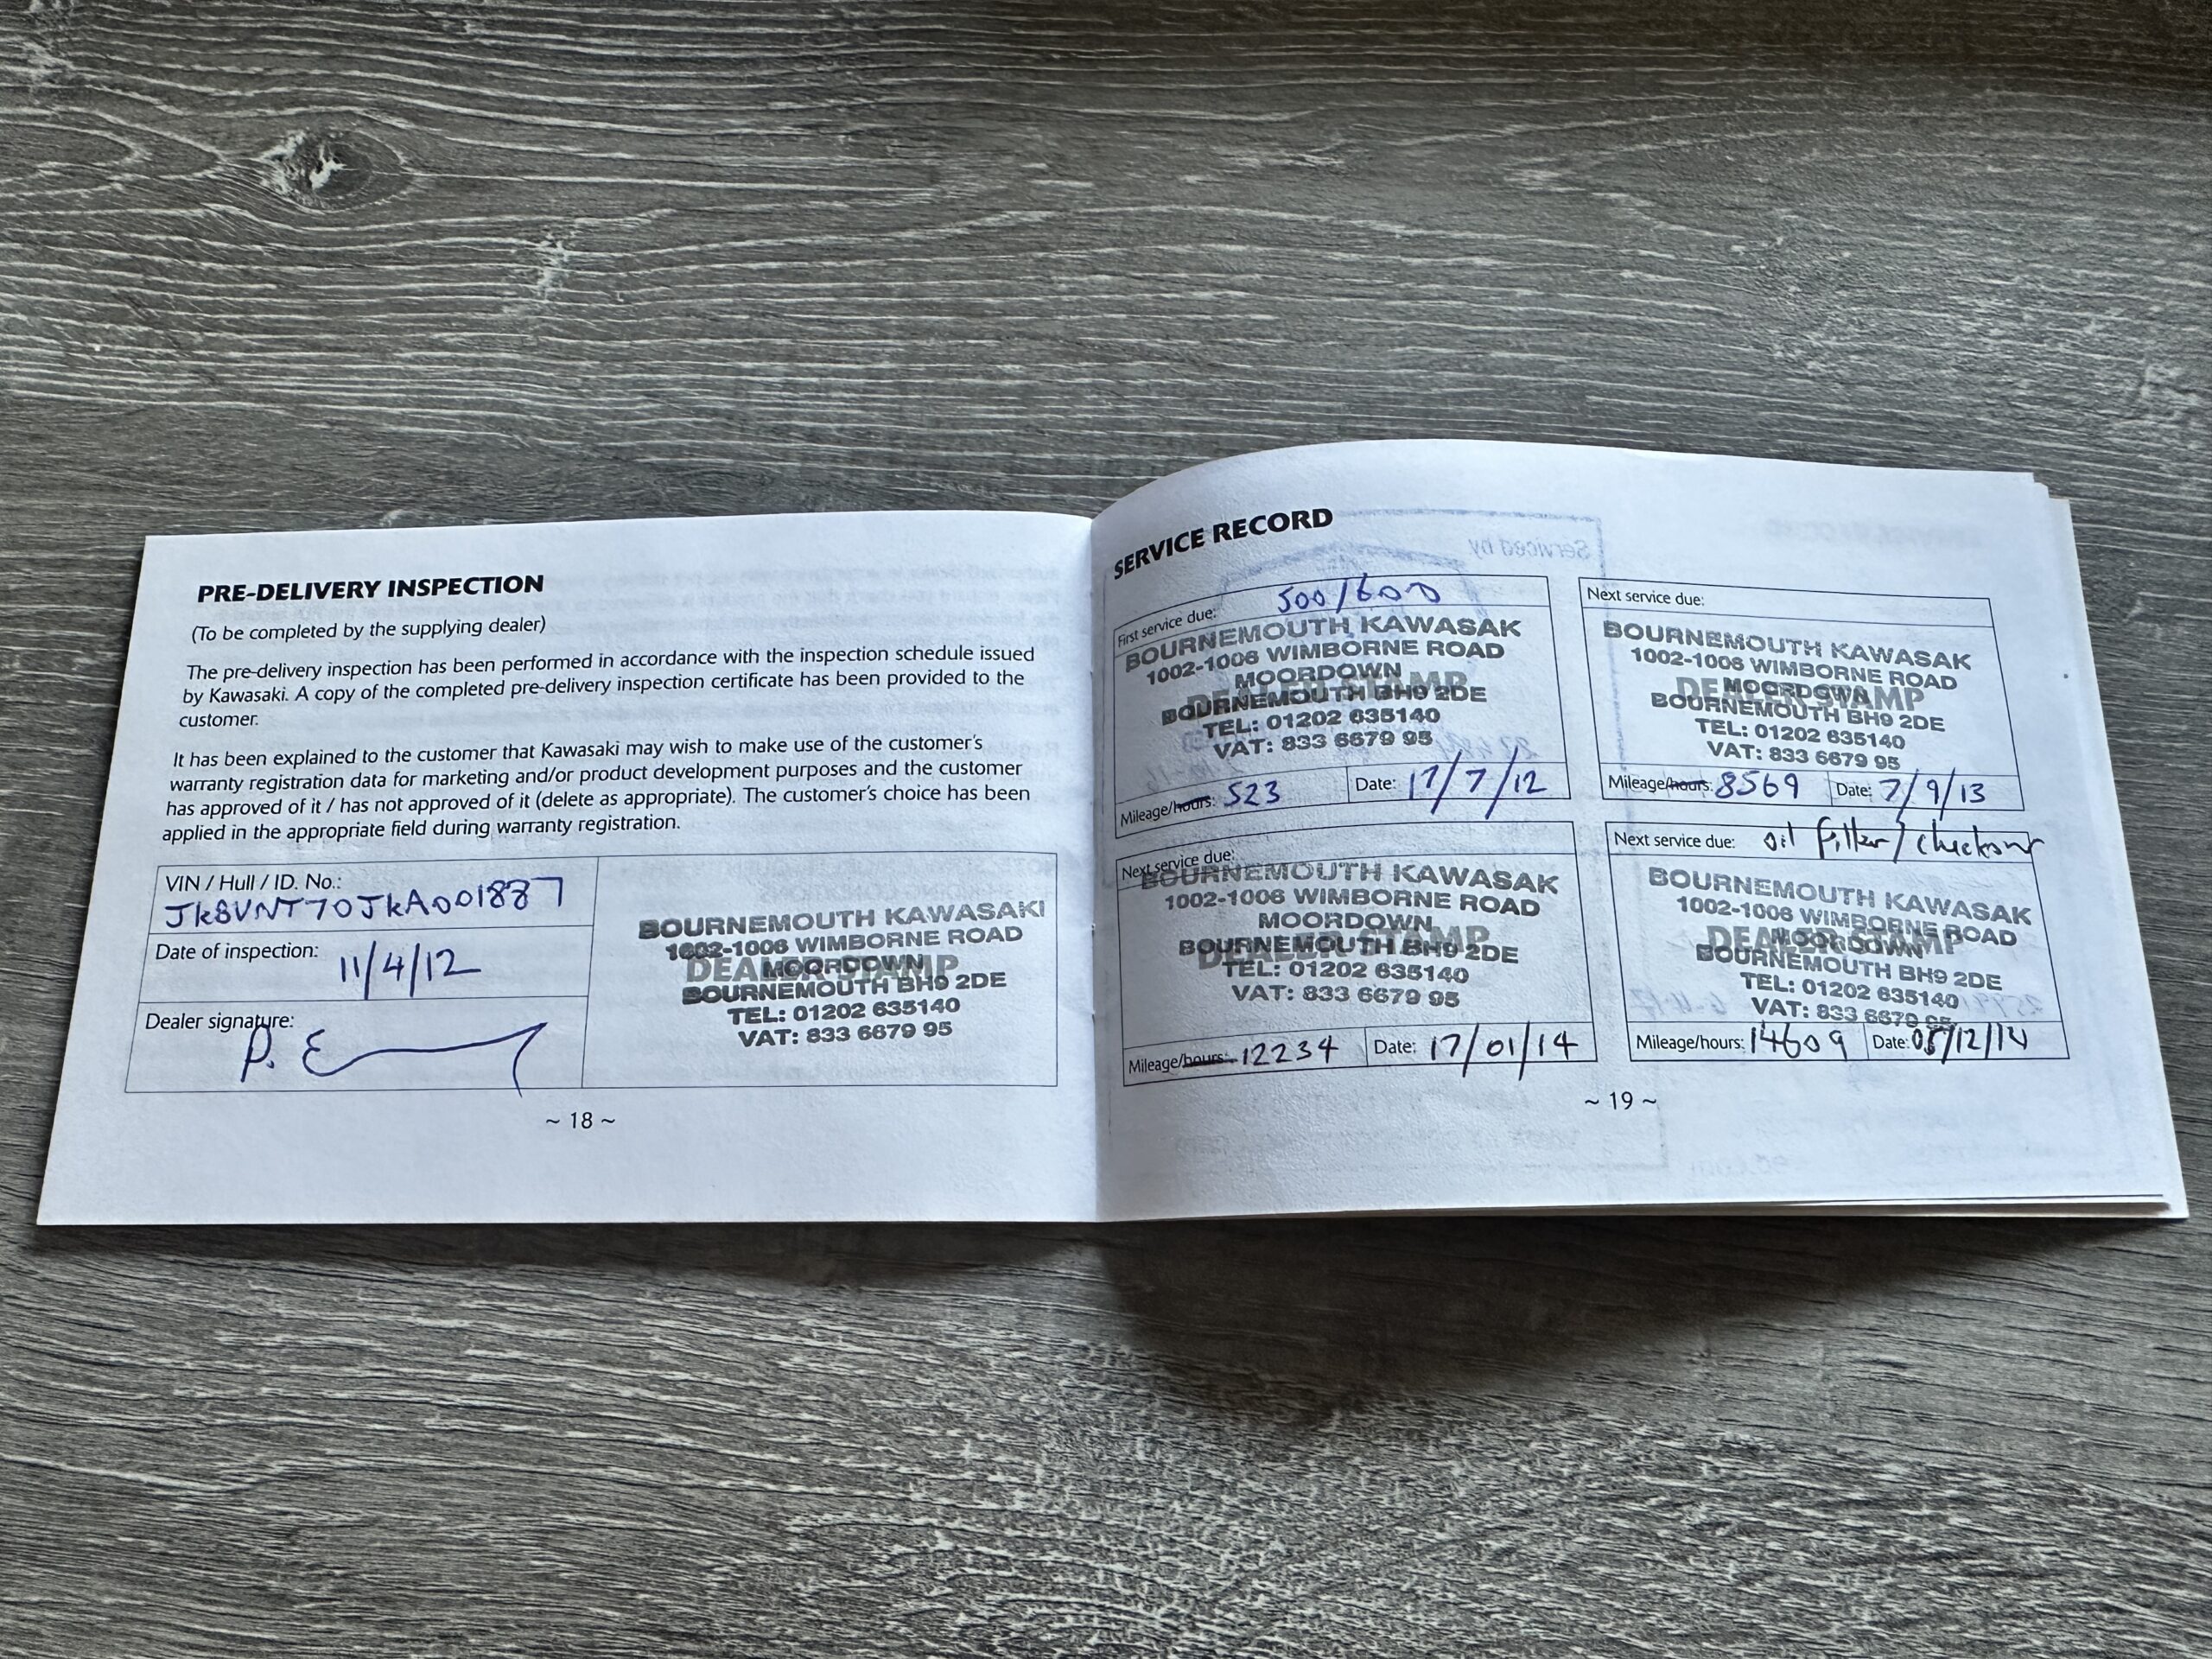 PRE-DELIVERY INSPECTION
(To be completed by the supplying dealer)
The pre-delivery inspection has been performed in accordance with the inspection schedule issued
by Kawasaki. A copy of the completed pre-delivery inspection certificate has been provided to the
customer.
It has been explained to the customer that Kawasaki may wish to make use of the customer's
warranty registration data for marketing and/or product development purposes and the customer
has approved of it / has not approved of it (delete as appropriate). The customer's choice has been
applied in the appropriate field during warranty registration.
VIN / Hull / ID. No.:
JkBVNT70JkA001887
Date of inspection:
11/4/12
Dealer signature:
P. E
BOURNEMOUTH KAWASAKI
1002-1006 WIMBORNE ROAD
DEALER STAMP
MOORDOWN
BOURNEMOUTH BH9 2DE
TEL: 01202 635140
VAT: 833 6679 95
~ 18 ~
SERVICE RECORD
Serviced by
First service due: 500/600
BOURNEMOUTH KAWASAK
1002-1006 WIMBORNE ROAD
MOORDOWN
DEALER STAMP
BOURNEMOUTH BH9 2DE
TEL: 01202 635140
VAT: 833 6679 95
Mileage/hours: 523 Date: 17/7/12
Next service due:
BOURNEMOUTH KAWASAK
1002-1006 WIMBORNE ROAD
MOORDOWN
DEALER STAMP
BOURNEMOUTH BH9 2DE
TEL: 01202 635140
VAT: 833 6679 95
Mileage/hours: 8569 Date: 7/9/13
Next service due:
BOURNEMOUTH KAWASAK
1002-1006 WIMBORNE ROAD
MOORDOWN
DEALER STAMP
BOURNEMOUTH BH9 2DE
TEL: 01202 635140
VAT: 833 6679 95
Mileage/hours: 12234 Date: 17/01/14
Next service due: oil filter / checkover
BOURNEMOUTH KAWASAK
1002-1006 WIMBORNE ROAD
DEALER STAMP
MOORDOWN
BOURNEMOUTH BH9 2DE
TEL: 01202 635140
VAT: 833 6679 95
Mileage/hours: 14609 Date: 05/12/14
~ 19 ~